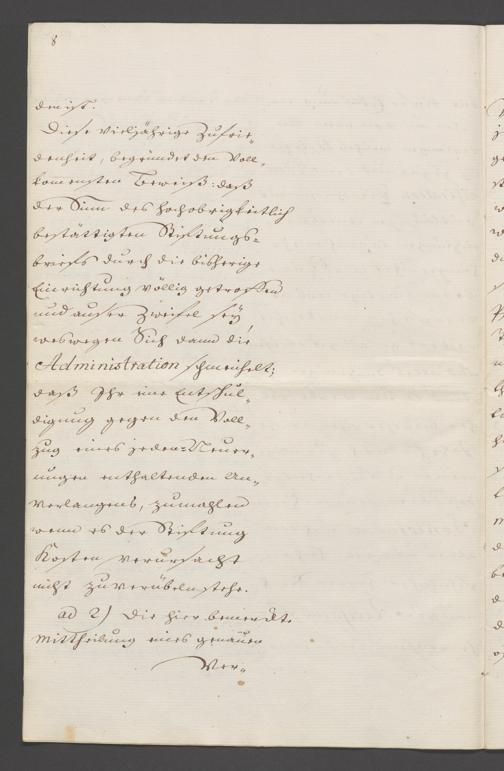 8
den ist.
Diese vieljährige Zufrie-
denheit, begründet den Voll-
kommensten Beweiß: daß
der Sinn des hochobrigkeitlich
bestättigten Stiftungs-
briefs durch die bisherige
Einrichtung völlig getroffen
und außer Zweifel sey
weswegen Sich dann die
Administration schmeichelt;
daß Ihr eine Entschul-
digung gegen den Voll-
zug eines jeden Neuer-
ungen enthaltenden An-
verlangens, zumahlen
wenn es der Stiftung
Kosten verursacht
nicht zuverübeln stehe.
ad 2) Die hier bemerkte
Mittheilung eines genauen
Ver-